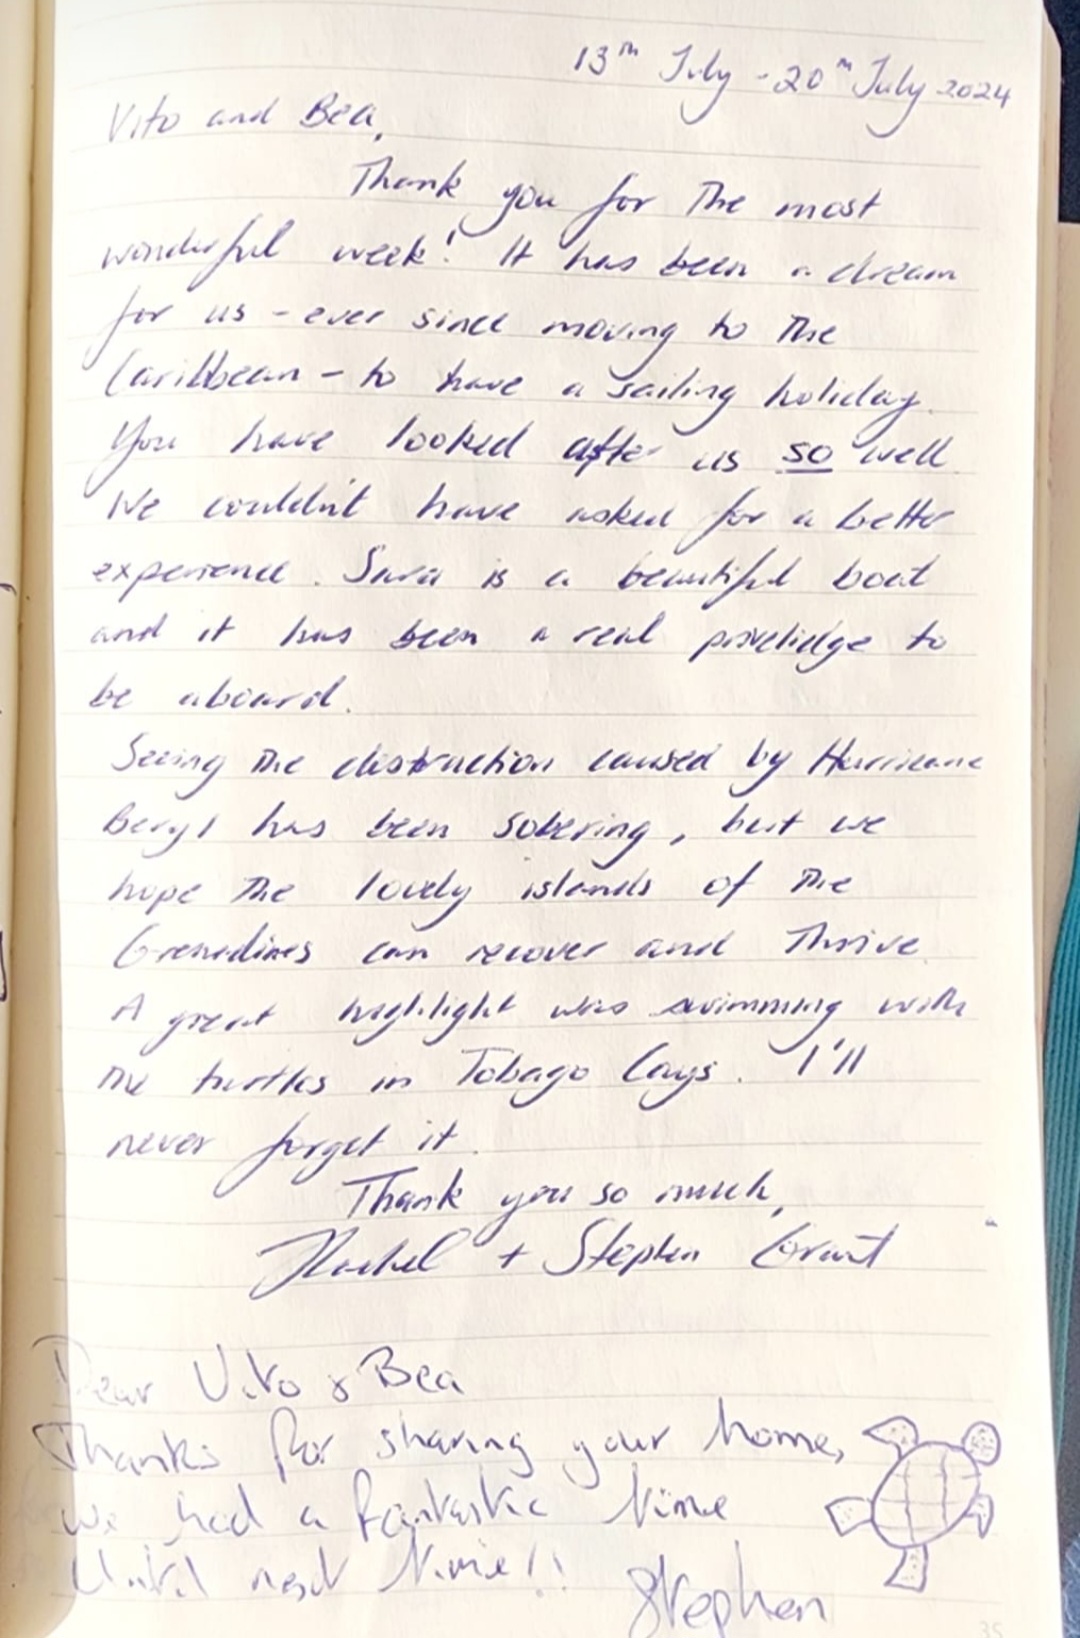 13th July - 20th July 2024
Vito and Bea,
Thank you for the most
wonderful week! It has been a dream
for us - ever since moving to the
Caribbean - to have a sailing holiday.
You have looked after us so well.
We couldn't have asked for a better
experience. Sava is a beautiful boat
and it has been a real privelidge to
be aboard.
Seeing the destruction caused by Hurricane
Beryl has been sobering, but we
hope the lovely islands of the
Grenadines can recover and thrive.
A great highlight was swimming with
the turtles in Tobago Cays. I'll
never forget it.
Thank you so much,
Rachel + Stephen Grant
Dear Vito & Bea
Thanks for sharing your home,
we had a fantastic time
Until next time!!
Stephen
35